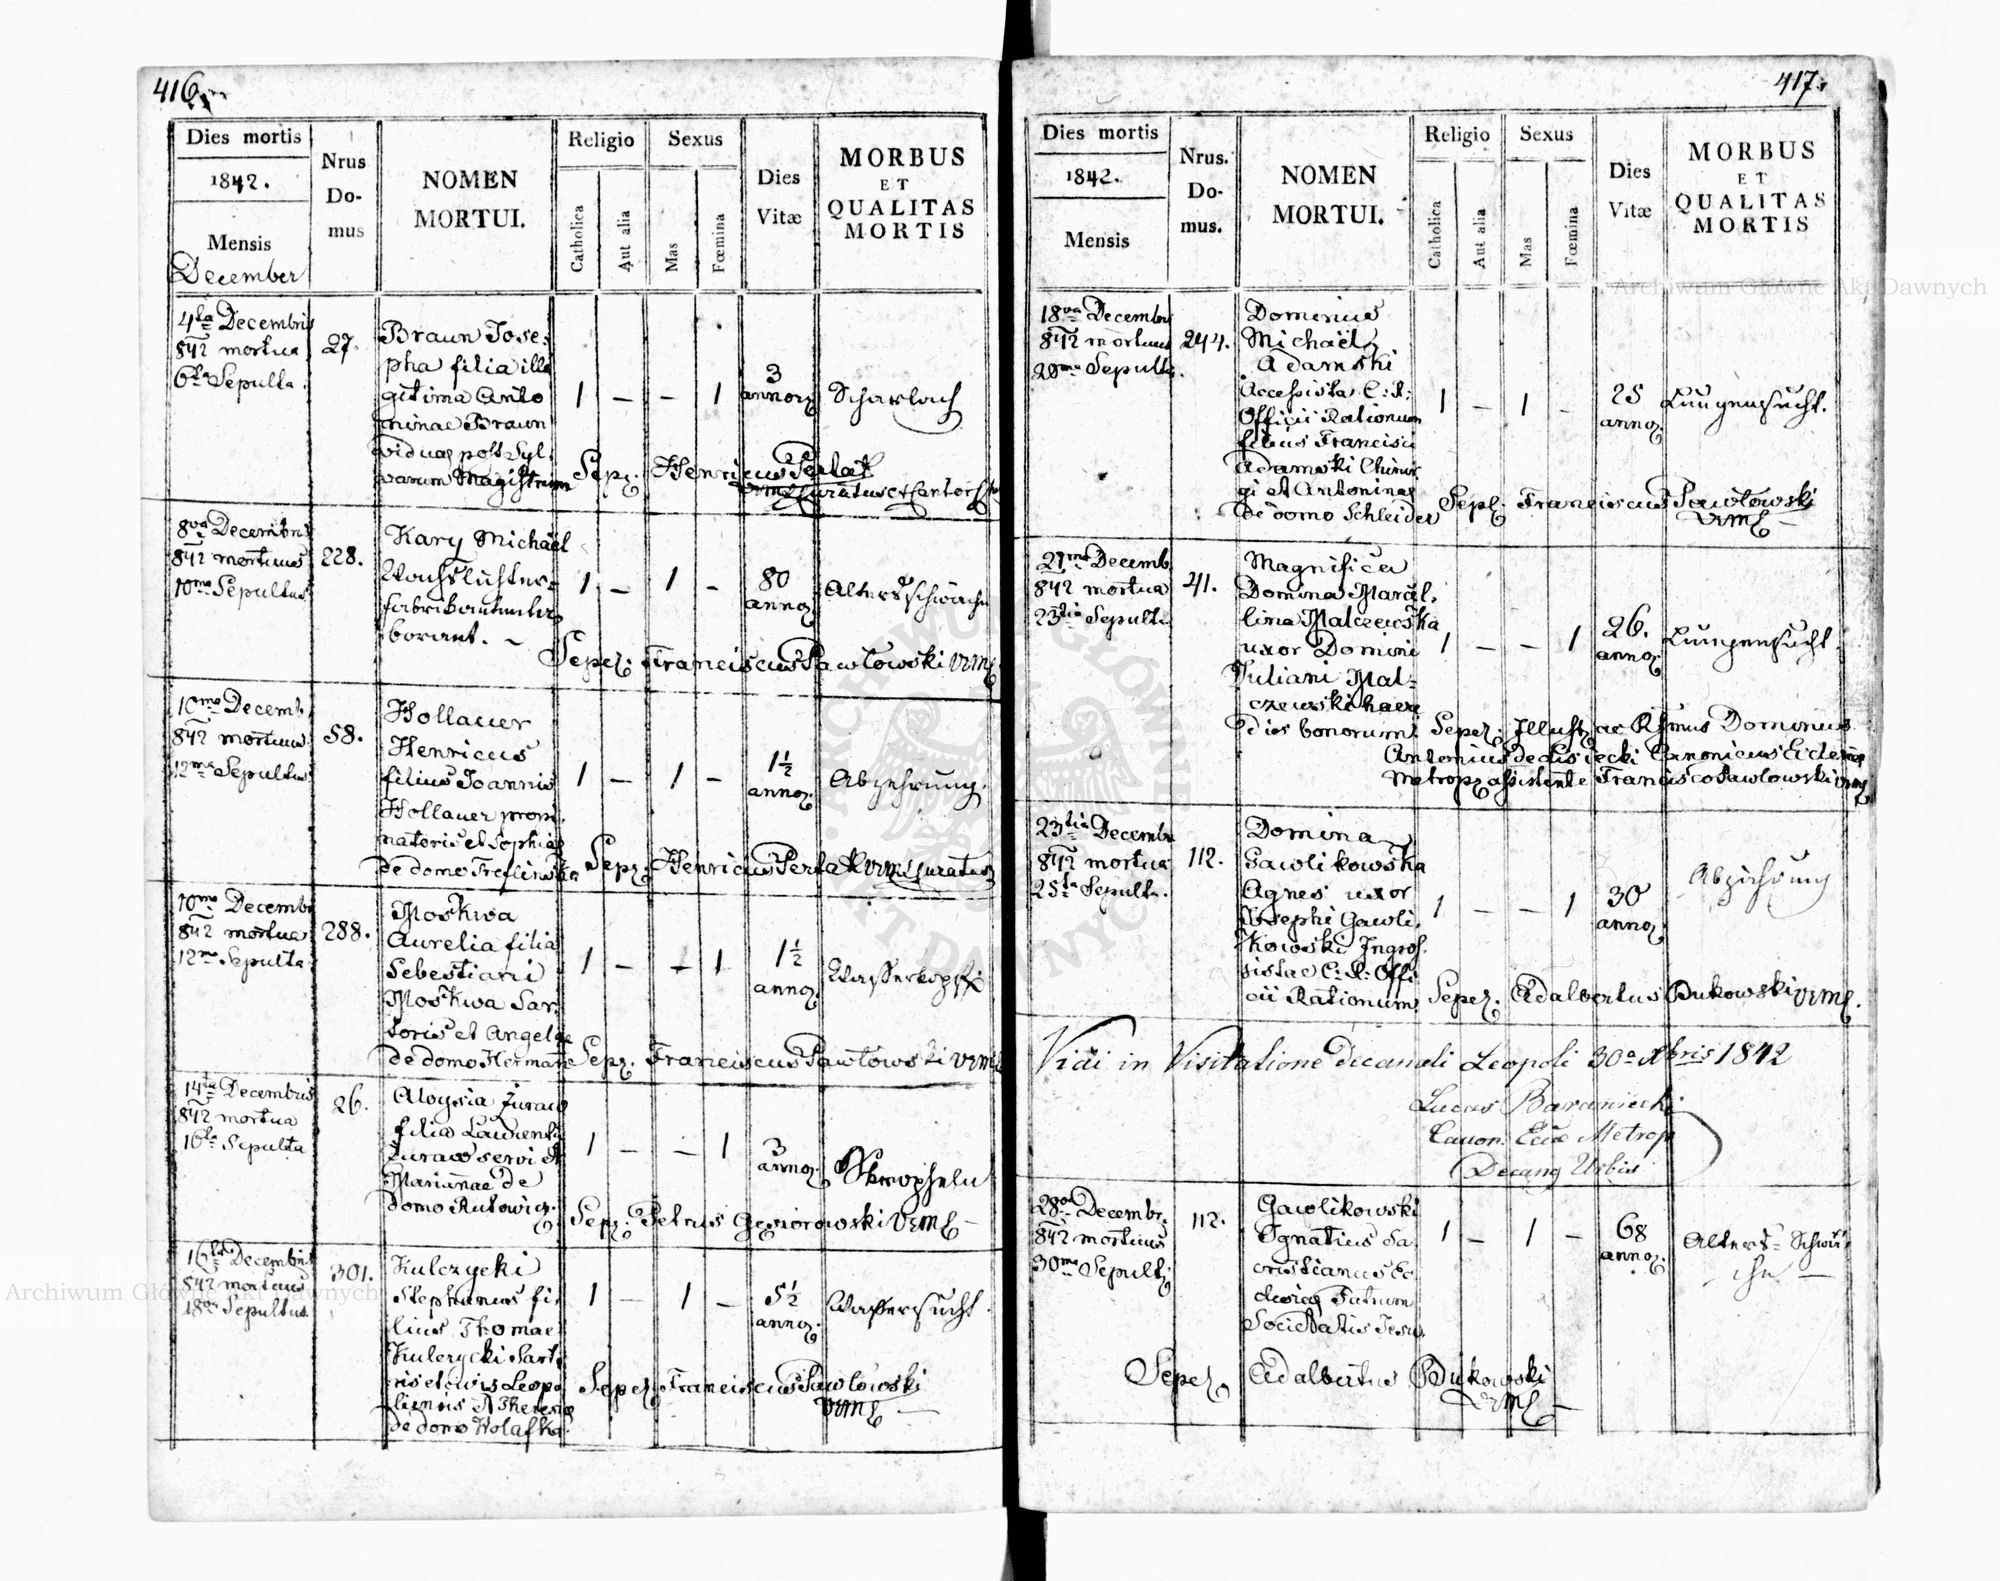 416.
Dies mortis
1842.
Mensis
December
Nrus
Do-
mus
NOMEN
MORTUI.
Religio
Catholica
Aut alia
Sexus
Mas
Fœmina
Dies
Vitæ
MORBUS
ET
QUALITAS
MORTIS
4ta Decembris
842 mortua
6ta Sepulta.
27.
Braun Jose-
pha filia ille
gitima Anto
ninae Braun
viduae post Syl-
varum Magistrum
1 — — 1
3
annor
Scharlach
Sepel. Henricus Perlak
VRML Curatus et Cantor
8va Decembris
842 mortuus
10ma Sepultus
228.
Kary Michael
Wachslichter-
1 — 1 —
80
annor
Altersschwäche
Sepel. Franciscus Pawlowski VRML
10ma Decemb
842 mortuus
12ma Sepultus
58.
Hollauer
Henricus
filius Joannis
Hollauer propi
natoris et Sophiae
de domo
1 — 1 —
1½
annor
Abzehrung.
Sepel. Henricus Perlak VRML Curatus
10ma Decembr
842 mortua
12ma Sepulta
288.
Moskwa
Aurelia filia
Sebestiani
Moskwa Sar-
toris et Angelae
de domo Herman
1 — — 1
1½
annor
Wasserkopf
Sepel. Franciscus Pawlowski VRML
14ta Decembris
842 mortua
16ta Sepulta
26.
Aloysia Juraw
filia Laurenti
Juraw servi et
Mariannae de
domo Rutowicz.
1 — — 1
3
annor.
Skropheln
Sepel. Petrus Gąsiorowski VRML —
16ta Decembris
842 mortuus
18va Sepultus
301.
Kulczycki
Stephanus fi-
lius Thomae
Kulczycki Sarto
ris et civis Leopo
liensis et Theresiae
de domo Wolafka
1 — 1 —
5½
annor.
Wassersucht.
Sepel. Franciscus Pawlowski
VRML —
417.
Dies mortis
1842.
Mensis
Nrus.
Do-
mus.
NOMEN
MORTUI.
Religio
Catholica
Aut alia
Sexus
Mas
Fœmina
Dies
Vitæ
MORBUS
ET
QUALITAS
MORTIS
18va Decembr
842 mortuus
20ma Sepult.
244.
Dominus
Michaël
Adamski
Accessista C: R:
Officii Rationum
filius Francisci
Adamski Chirur
gi et Antoninae
de domo Schleider
1 — 1 —
25
annor
Lungensucht.
Sepel. Franciscus Pawlowski
VRML —
21ma Decemb
842 mortua
23tia Sepult.
41.
Magnifica
Domina Marcel-
lina Malczewska
uxor Domini
Juliani Mal-
czewski haere
dis bonorum
1 — — 1
26.
annor
Lungensucht.
Sepel. Illustr ac Rssmus Dominus
Antonius de Canonicus Eccles
Metrop assistente Francisco Pawlowski VRML
23tia Decembr
842 mortua
25ta Sepulta.
112.
Domina
Gawlikowska
Agnes uxor
Josephi Gawli-
kowski Ingros-
sistae C: R: Offi
cii Rationum
1 — — 1
30
annor
Abzehrung
Sepel. Adalbertus Bukowski VRML.
Vidi in Visitatione decanali Leopoli 30a Xbris 1842
Lucas Baraniecki
Canon. Ecclae Metrop
Decanus Urbis
28va Decembr.
842 mortuus
30ma Sepult.
112.
Gawlikowski
Ignatius Sa-
cristianus Ec-
clesiae Patrum
Societatis Jesu
1 — 1 —
68
annor.
Alters-Schwä-
che —
Sepel. Adalbertus Bukowski
VRML —
Archiwum Główne Akt Dawnych
Archiwum Główne Akt Dawnych
ARCHIWUM GŁÓWNE AKT DAWNYCH